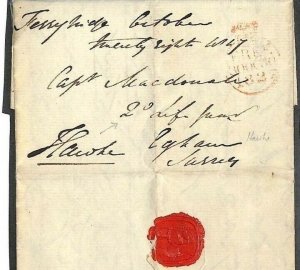 Ferrybridge October
twenty eight 1847
Capt Macdonald
2d Life Guards
Hawke Egham
Surrey
Hawke
FREE